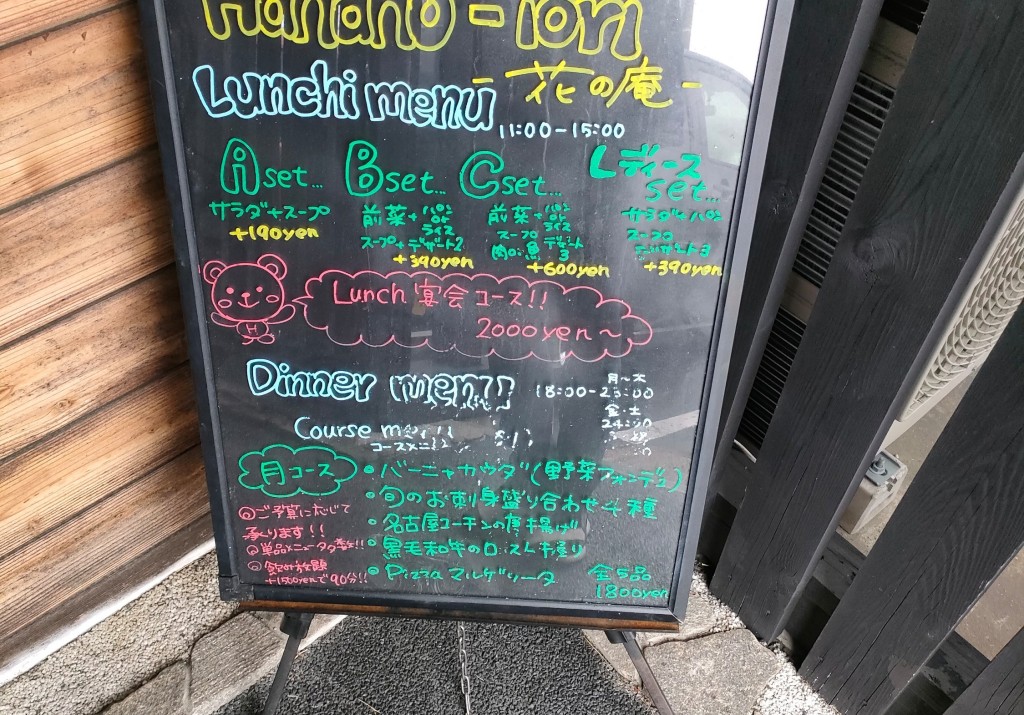 Hanano-Iori
Lunchi menu
-花の庵-
11:00-15:00
A set...
サラダ+スープ
+190yen
B set...
前菜+パンorライス
スープ+デザート2
+390yen
C set...
前菜+パンorライス
スープ
肉or魚
デザート3
+600yen
レディース
set...
サラダ+パン
スープ
デザート3
+390yen
Lunch 宴会コース!!
2000yen~
H
Dinner menu
月~木
18:00-23:00
金・土
Course
コースメニ
月コース
・バーニャカウダ(野菜フォンデュ)
・旬のお刺身盛り合わせ
種
・名古屋コーチンの唐揚げ
・黒毛和牛のロースト
・Pizzaマルゲリータ
全5品
1800yen
ご予算に応じて
承ります!!
単品メニュー多数!!
飲み放題
+1500yenで90分!!